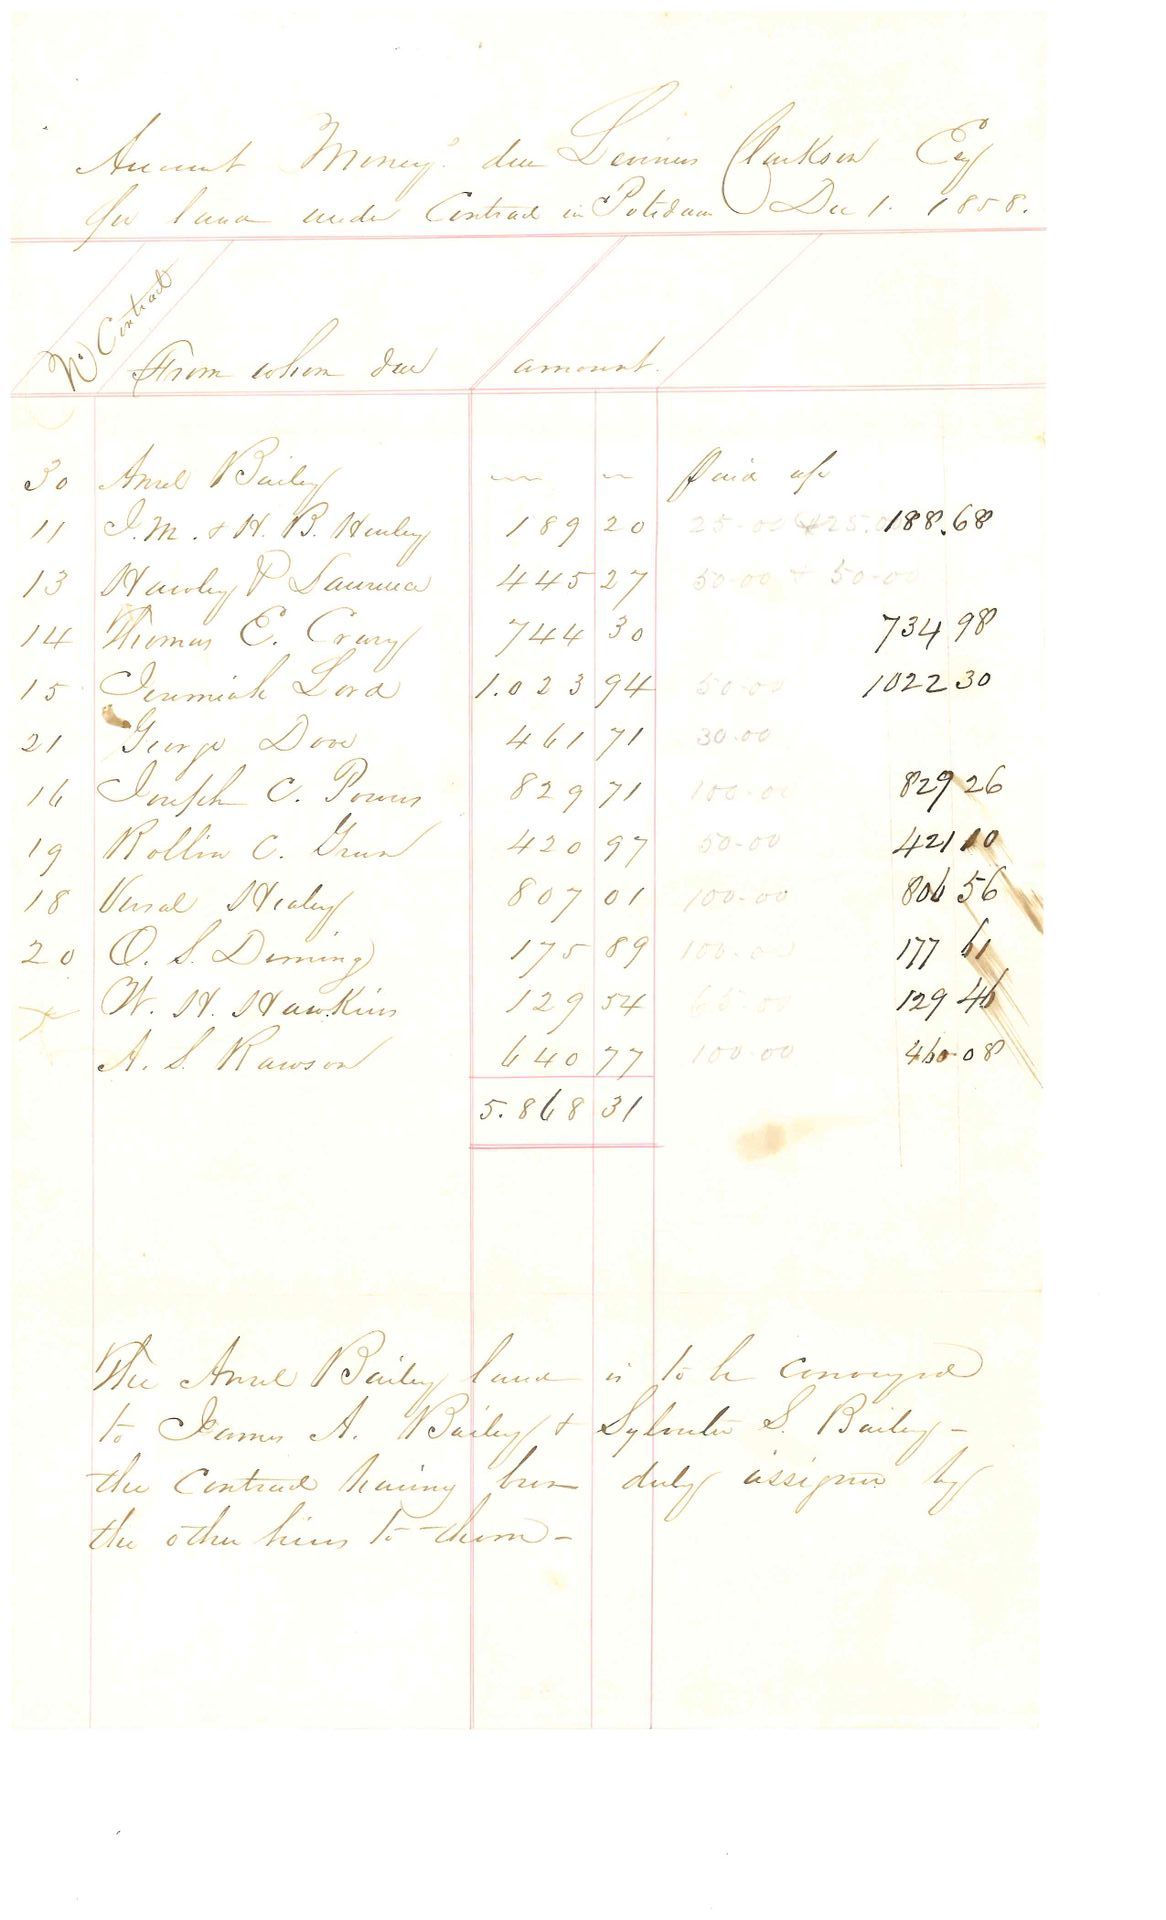 Amount Money due Levinus Clarkson Esq
for land under Contract in Potsdam Dec 1. 1858.
No Contract
From whom due amount.
30 Ansel Bailey — — paid up
11 J. M. & H. B. Healey 189 20 25.00 & 25.0 188.68
13 Hawley P Laurence 445 27 50.00 + 50.00
14 Thomas E. Crary 744 30 734 98
15 Jeremiah Lord 1.023 94 50.00 1022 30
21 George Dove 461 71 30.00
16 Joseph C. Powers 829 71 100.00 829 26
19 Rollin C. Green 420 97 50-00 421 10
18 Healey 807 01 100-00 806 56
20 O. S. Deming 175 89 100.00 177 61
W. H. Hawkins 129 54 65.00 129 46
A. S. Rawson 640 77 100.00 460.08
5.868 31
The Ansel Bailey land is to be conveyed
to James A. Bailey & Sylvester S. Bailey –
the Contract having been duly assigned by
the other heirs to them –